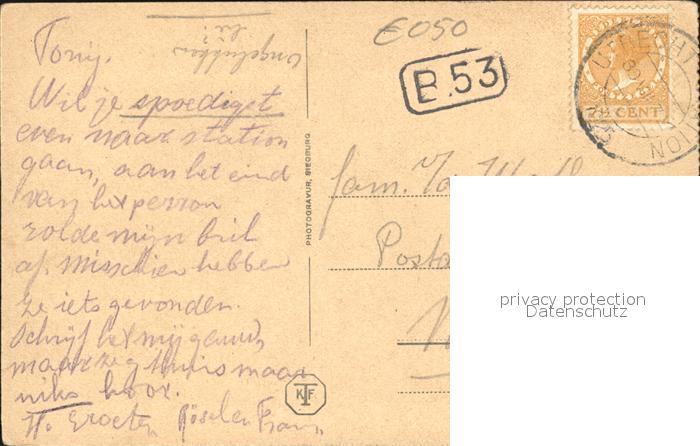 €050
B.53
UTRECHT
STATION
7½ CENT
Tony.
Wil je spoedigst
even naar station
gaan, aan het eind
van het perron
rolde mijn bril
af. Misschien hebben
ze iets gevonden.
Schrijf het mij gauw,
maar zeg thuis maar
niks hoor.
Groeten
PHOTOGRAVUR, SIEGBURG
Fam.
KTF
privacy protection
Datenschutz